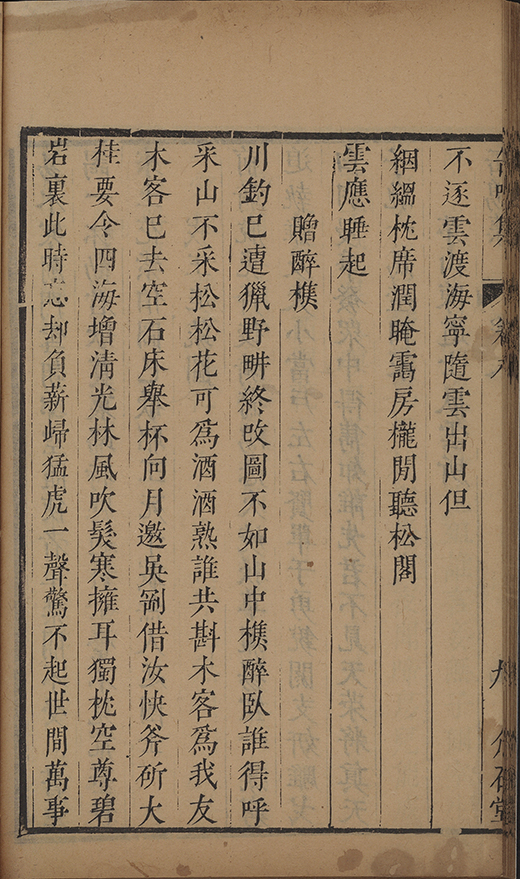 缶鳴集 卷八 介石堂
不逐雲渡海寧隨雲出山但
絪縕枕席潤晻靄房櫳閒聽松閣
雲應睡起
贈醉樵
川釣已遭獵野畊終改圖不如山中樵醉臥誰得呼
采山不采松松花可爲酒酒熟誰共斟木客爲我友
木客已去空石床舉杯向月邀吳剛借汝快斧斫大
桂要令四海增清光林風吹髮寒擁耳獨枕空尊碧
岩裏此時忘却負薪歸猛虎一聲驚不起世間萬事